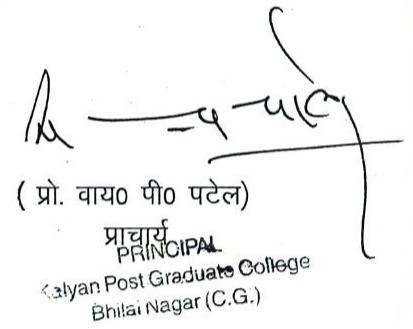 ( प्रो. वाय0 पी0 पटेल)
प्राचार्य
PRINCIPAL
Kalyan Post Graduate College
Bhilai Nagar (C.G.)